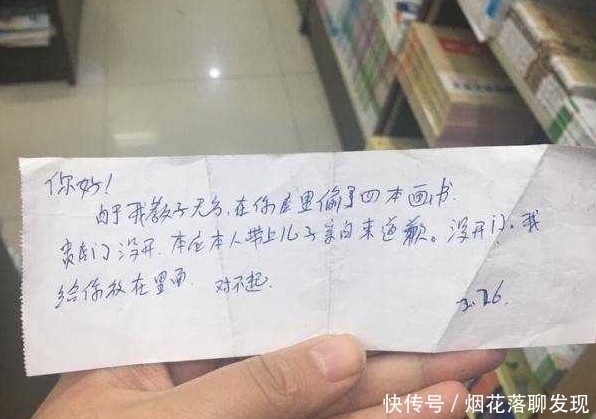 你好！
由于我教子无方，在你店里偷了四本画书.
贵店门没开.本应本人带上儿子亲自来道歉。没开门，我
给你放在里面. 对不起.
3.26.
快传号／烟花落聊发现